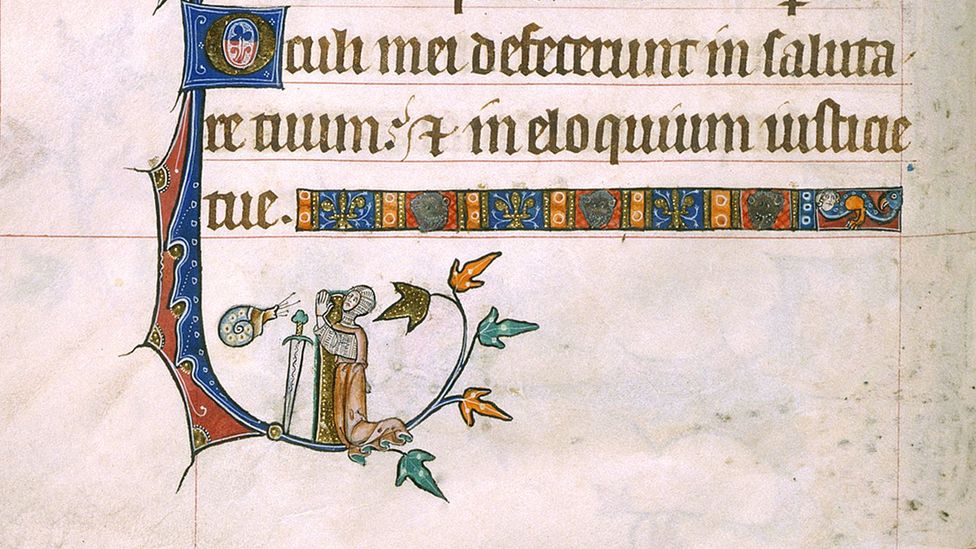 Oculi mei defecerunt in saluta
re tuum. ⁊ in eloquium iusticie
tue.